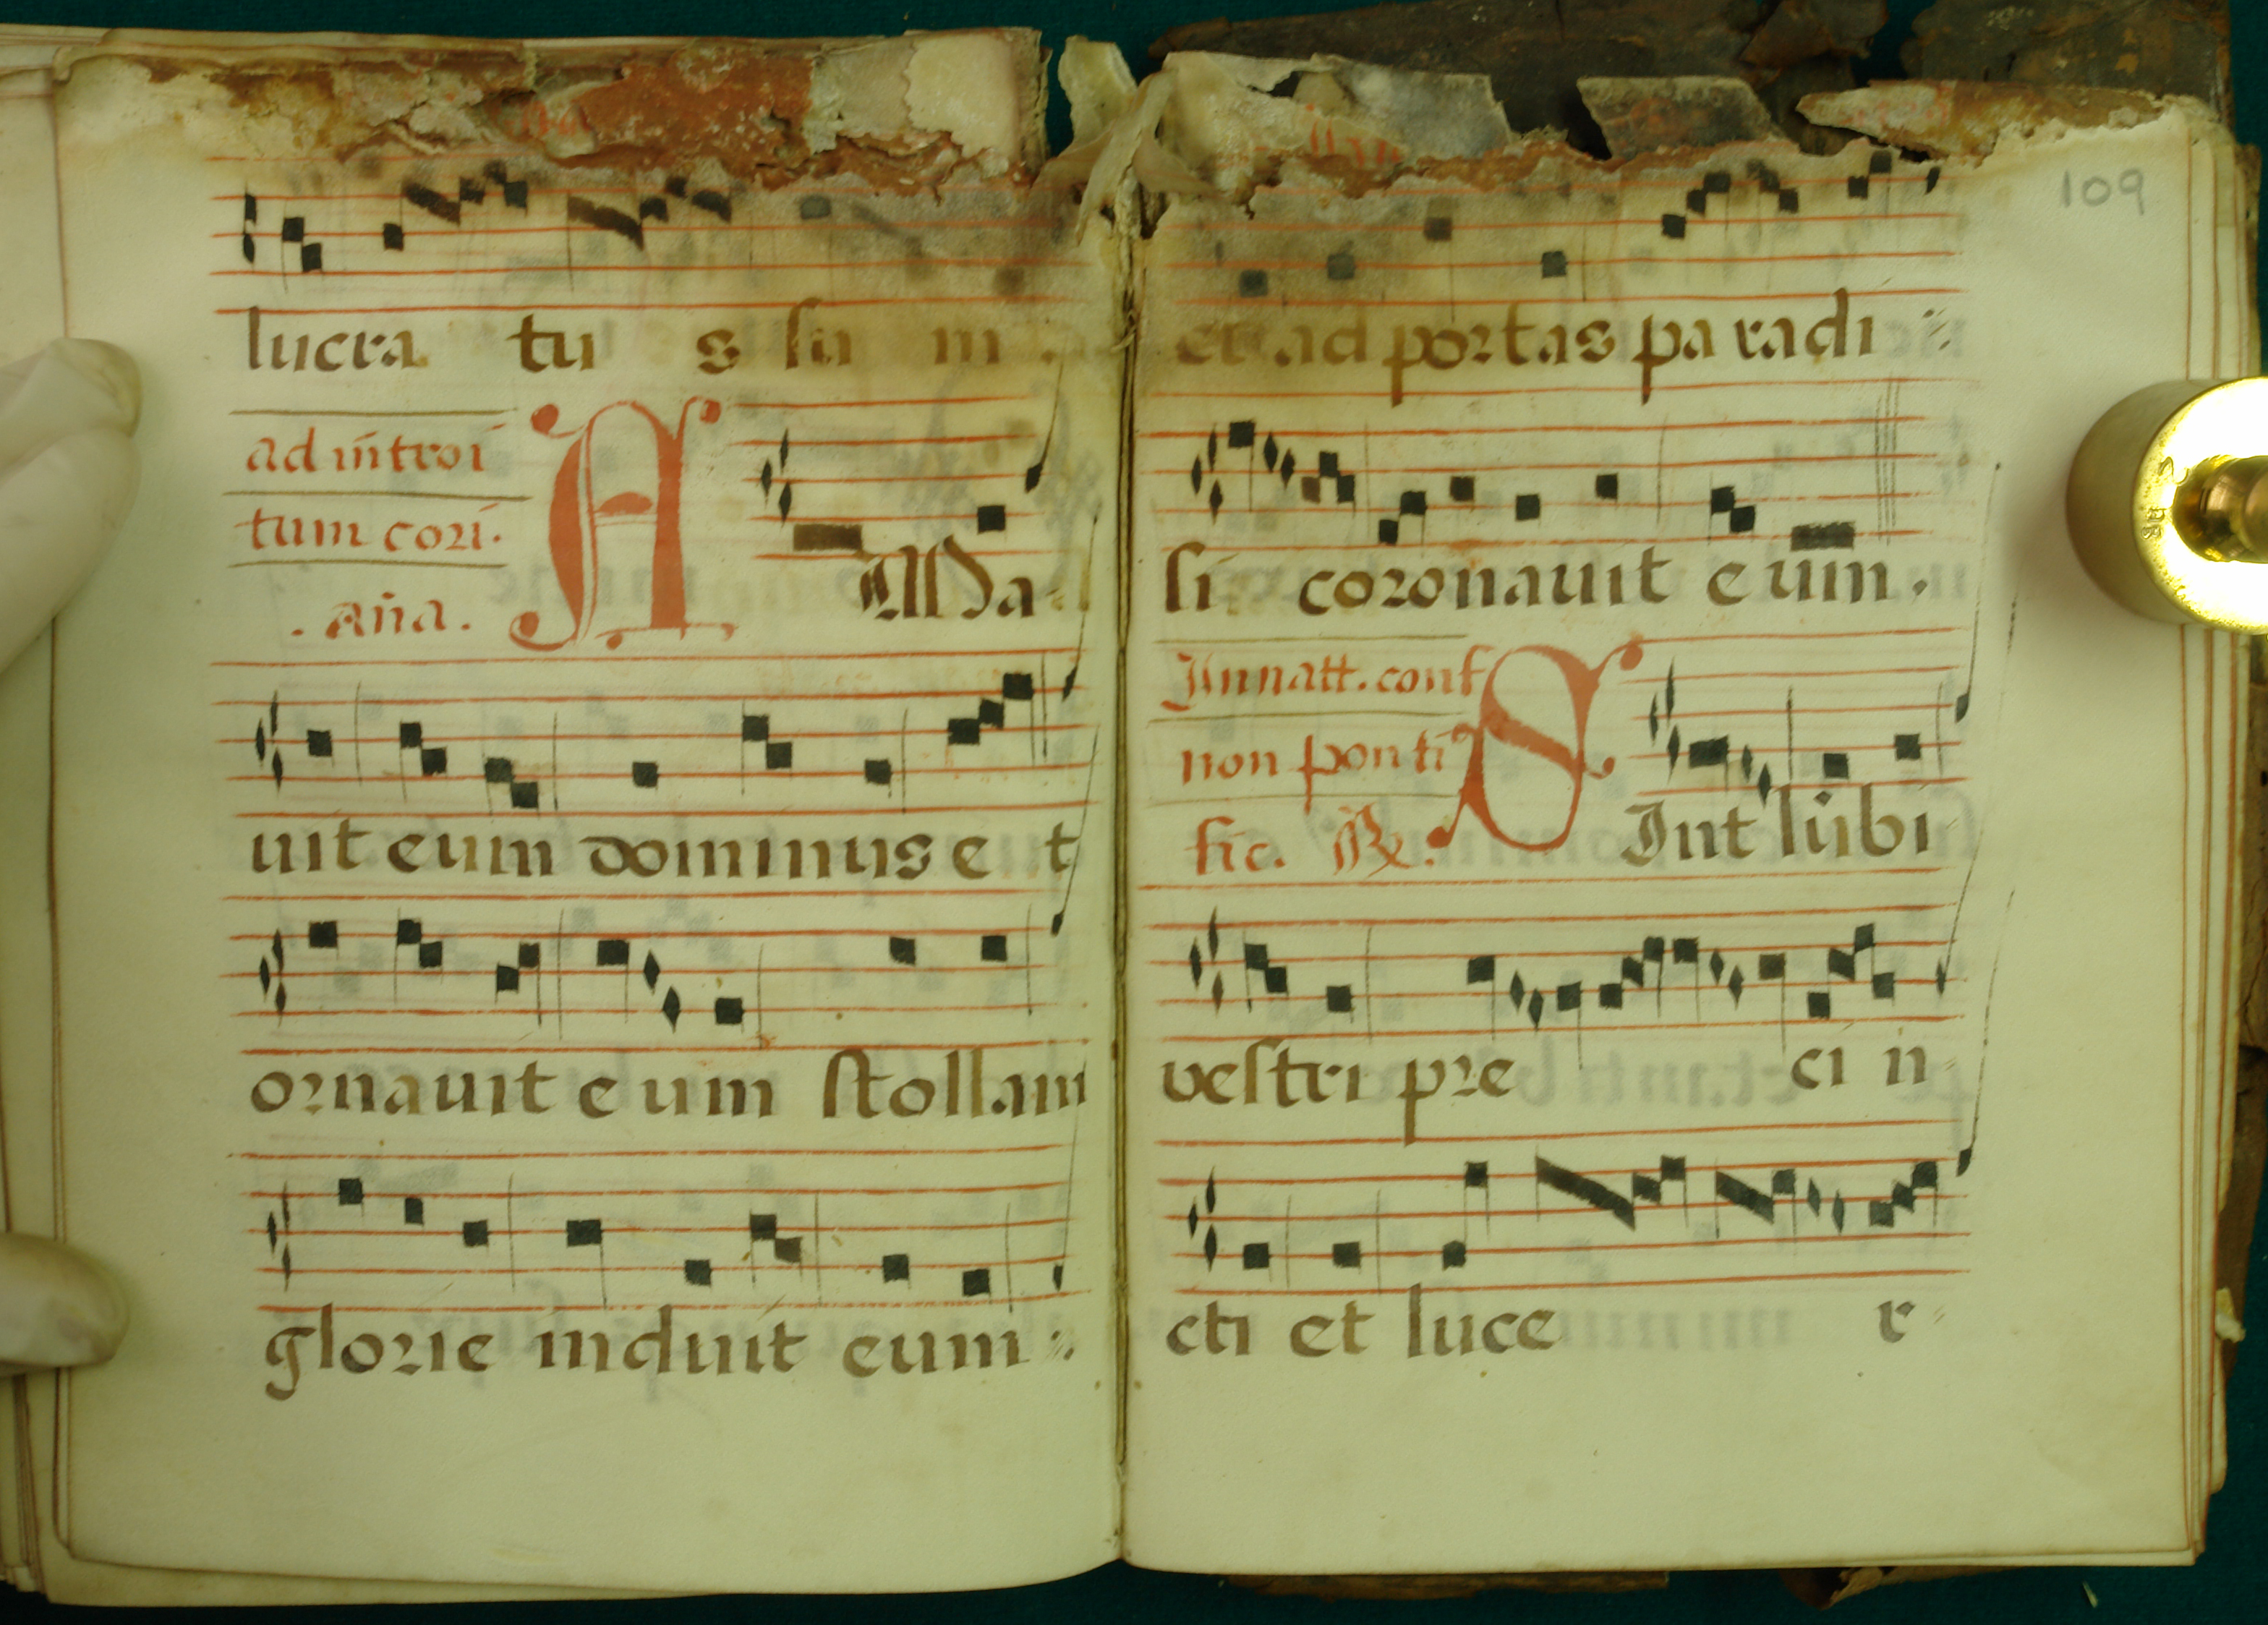 lucra tu s su m
ad introi
tum cori.
.aña.
A Ma
uit eum dominus e t
ornauit e um stollam
glorie induit eum
109
et ad portas pa radi
si coronauit e um.
In natt. conf
non ponti
fic. ℟.
S Int lubi
vestri pre ci n
cti et luce r